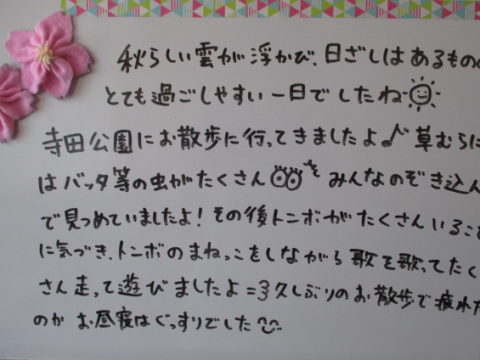 秋らしい雲が浮かび、日ざしはあるものの
とても過ごしやすい一日でしたね
寺田公園にお散歩に行ってきましたよ♪草むらに
はバッタ等の虫がたくさん を みんなのぞき込ん
で見つめていましたよ！その後トンボがたくさんいるこ
に気づき、トンボのまねっこをしながら歌を歌ってたく
さん走って遊びましたよ=3久しぶりのお散歩で疲れた
のか お昼寝はぐっすりでした